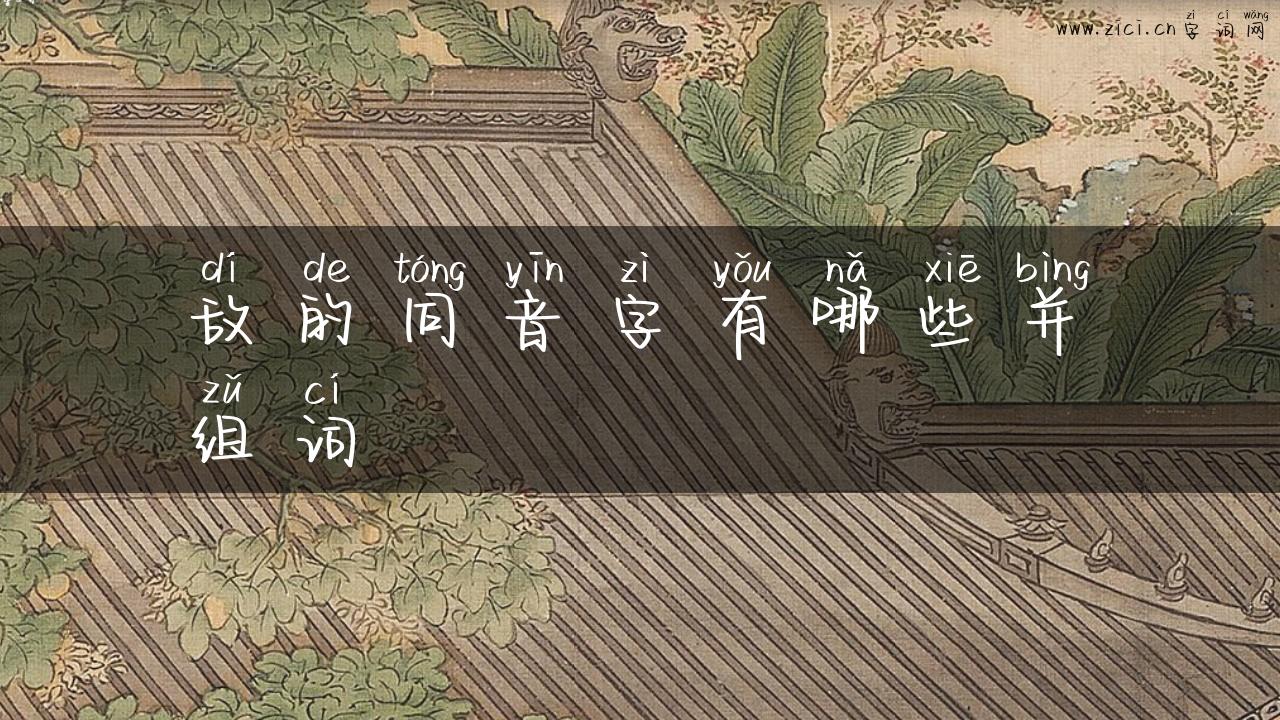 zì cí wǎng
www.zici.cn 字词网
dí de tóng yīn zì yǒu nǎ xiē bìng
敌的同音字有哪些并
zǔ cí
组词